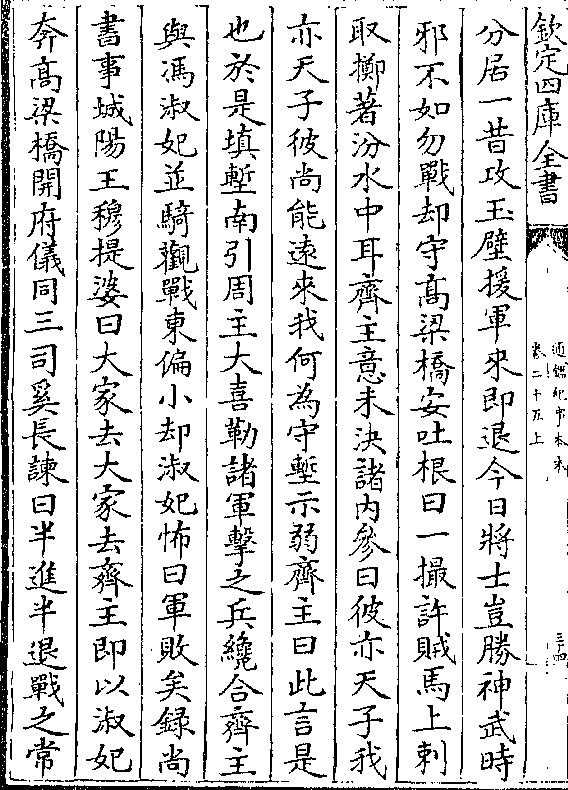 欽定四庫全書
通鑑紀事本末
卷二十五上
三十四
分居一昔攻玉壁援軍來即退今日將士豈勝神武時
邪不如勿戰却守高梁橋安吐根曰一撮許賊馬上刺
取擲著汾水中耳齊主意未決諸内參曰彼亦天子我
亦天子彼尚能遠來我何為守塹示弱齊主曰此言是
也於是填塹南引周主大喜勒諸軍擊之兵纔合齊主
與馮淑妃並騎觀戰東偏小却淑妃怖曰軍敗矣録尚
書事城陽王穆提婆曰大家去大家去齊主即以淑妃
奔高梁橋開府儀同三司奚長諫曰半進半退戰之常